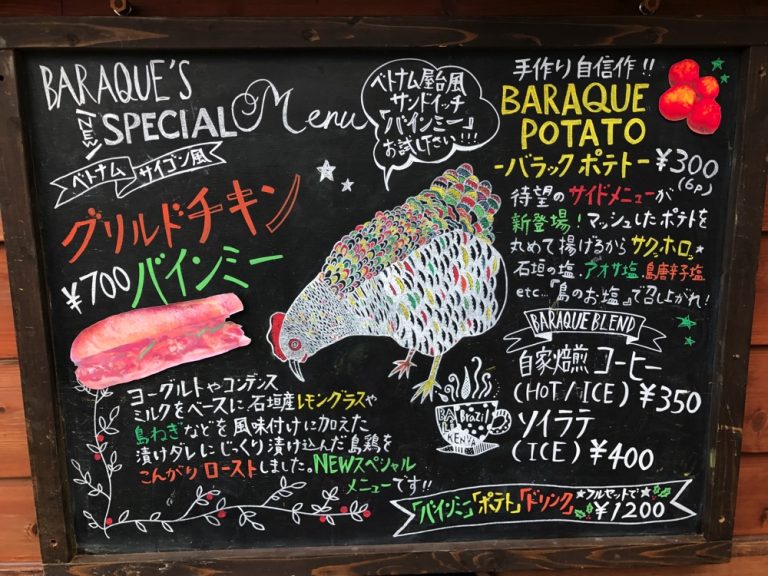 BARAQUE'S
NEW
SPECIAL Menu
ベトナム サイゴン風
グリルドチキン
¥700 バインミー
ヨーグルトやコンデンス
ミルクをベースに、石垣産レモングラスや
島ねぎなどを風味付けに加えた
漬けダレにじっくり漬け込んだ島鶏を
こんがりローストしました。NEWスペシャル
メニューです!!
ベトナム屋台風
サンドイッチ
「バインミー」
お試し下さい!!!
手作り自信作!!
BARAQUE
POTATO
-バラック ポテト- ¥300
(6p)
待望のサイドメニューが
新登場!マッシュしたポテトを
丸めて揚げるからサクッホロッ
石垣の塩.アオサ塩.島唐辛子塩
etc...『島のお塩』で召し上がれ!
BARAQUE BLEND
自家焙煎コーヒー
(HOT/ICE) ¥350
ソイラテ
(ICE) ¥400
BALI
Brazil
KENYA
「バインミー」「ポテト」「ドリンク」★フルセットで★
¥1200